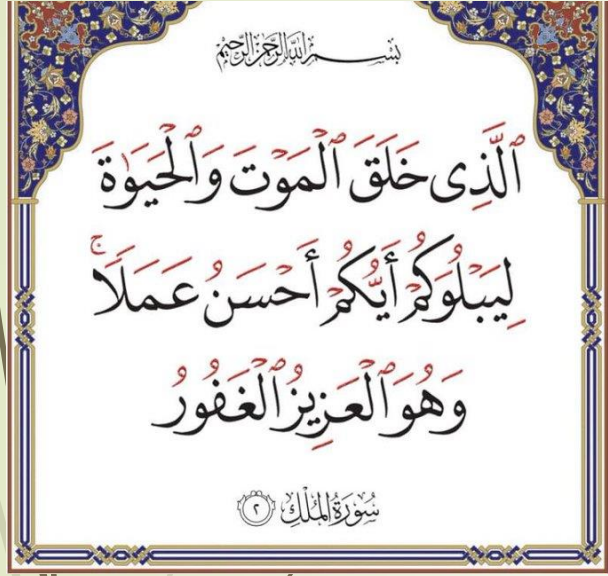 بِسْمِ اللَّهِ الرَّحْمَٰنِ الرَّحِيمِ
ٱلَّذِى خَلَقَ ٱلْمَوْتَ وَٱلْحَيَوٰةَ
لِيَبْلُوَكُمْ أَيُّكُمْ أَحْسَنُ عَمَلًا ۚ
وَهُوَ ٱلْعَزِيزُ ٱلْغَفُورُ
سُورَةُ المُلْكِ ٢